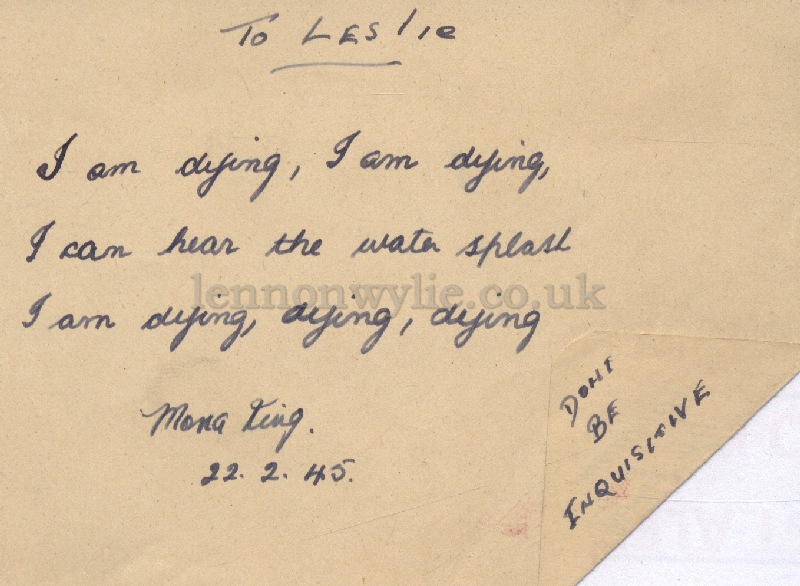 To Leslie
I am dying, I am dying,
I can hear the water splash
lennonwylie.co.uk
I am dying, dying, dying
Mona King.
22. 2. 45.
DONT
BE
INQUISITIVE